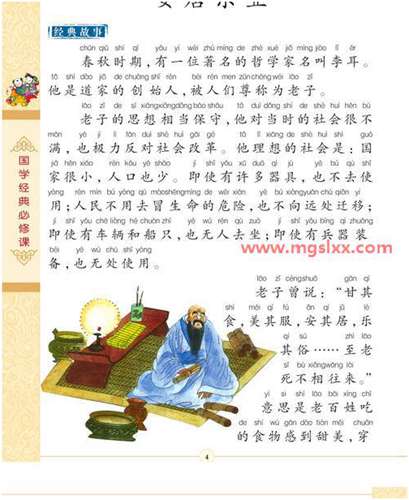 安居乐业
经典故事
chūn qiū shí qī yǒu yí wèi zhù míng de zhé xué jiā míng jiào lǐ ěr
春秋时期，有一位著名的哲学家名叫李耳。
tā shì dào jiā de chuàng shǐ rén bèi rén men zūn chēng wéi lǎo zǐ
他是道家的创始人，被人们尊称为老子。
lǎo zǐ de sī xiǎng xiāng dāng bǎo shǒu tā duì dāng shí de shè huì hěn bù
老子的思想相当保守，他对当时的社会很不
mǎn yě jí lì fǎn duì shè huì gǎi gé tā lǐ xiǎng de shè huì shì guó
满，也极力反对社会改革。他理想的社会是：国
jiā hěn xiǎo rén kǒu yě shǎo jí shǐ yǒu xǔ duō qì jù yě bú qù shǐ
家很小，人口也少。即使有许多器具，也不去使
yòng rén mín bú yòng qù mào shēng mìng de wēi xiǎn yě bú xiàng yuǎn chù qiān yí
用；人民不用去冒生命的危险，也不向远处迁移；
jí shǐ yǒu chē liàng hé chuán zhī yě wú rén qù zuò jí shǐ yǒu bīng qì zhuāng
即使有车辆和船只，也无人去坐；即使有兵器装
bèi yě wú chù shǐ yòng
备，也无处使用。
www.mgslxx.com
lǎo zǐ céng shuō gān qí
老子曾说：“甘其
shí měi qí fú ān qí jū lè
食，美其服，安其居，乐
qí sú zhì lǎo
其俗……至老
sǐ bù xiāng wǎng lái
死不相往来。”
yì si shì lǎo bǎi xìng chī
意思是老百姓吃
de shí wù gǎn dào tián měi chuān
的食物感到甜美，穿
国学经典必修课
4